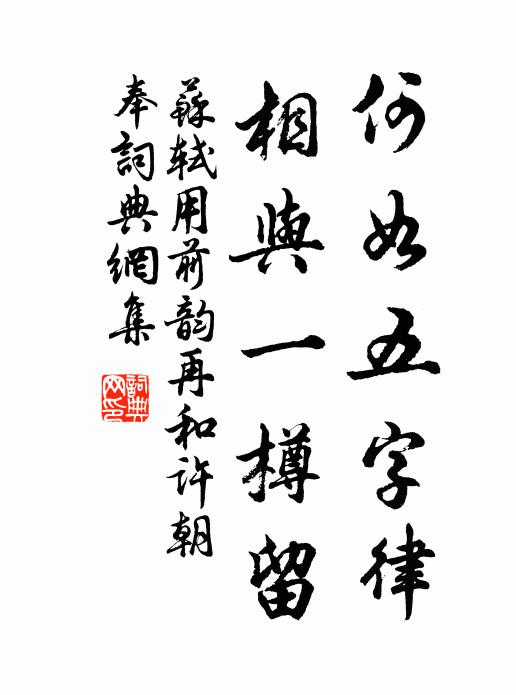 何如五字律
相與一樽留
蘇軾用前韵再和許朝
奉詞典網集
詞典网印